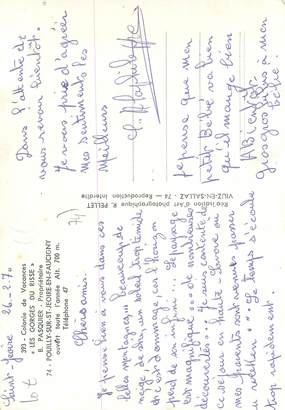 393 - Colonie de Vacances
« LES GORGES DU RISSE »
B. PASQUIER - Propriétaire
74 - POUILLY-SUR-ST-JEOIRE-EN-FAUCIGNY
ouvert toute l'année Alt. 700 m.
Téléphone 47
Réalisation d'Art photographique R. PELLET
VIUZ-EN-SALLAZ - 74 — Reproduction interdite
Saint-Jeoire 26-2-70
Je pense bien à vous dans ces
belles montagnes. Beaucoup de
neige, de soir, un soleil trop timide
c'est dommage car l'horizon
perd de son infini... Le paysage
est magnifique... de nombreuses
découvertes... Je suis contente de
ce séjour en Haute-Savoie ou
mes poumons peuvent
... Le temps s'écoule
trop rapidement.
Dans l'attente de
vous revoir bientôt
je vous prie d'agréer
mes sentiments les
meilleurs
je pense que mon
petit Bébé va bien
qu'il mange bien
A Bientôt
gros gros à mon
bébé.